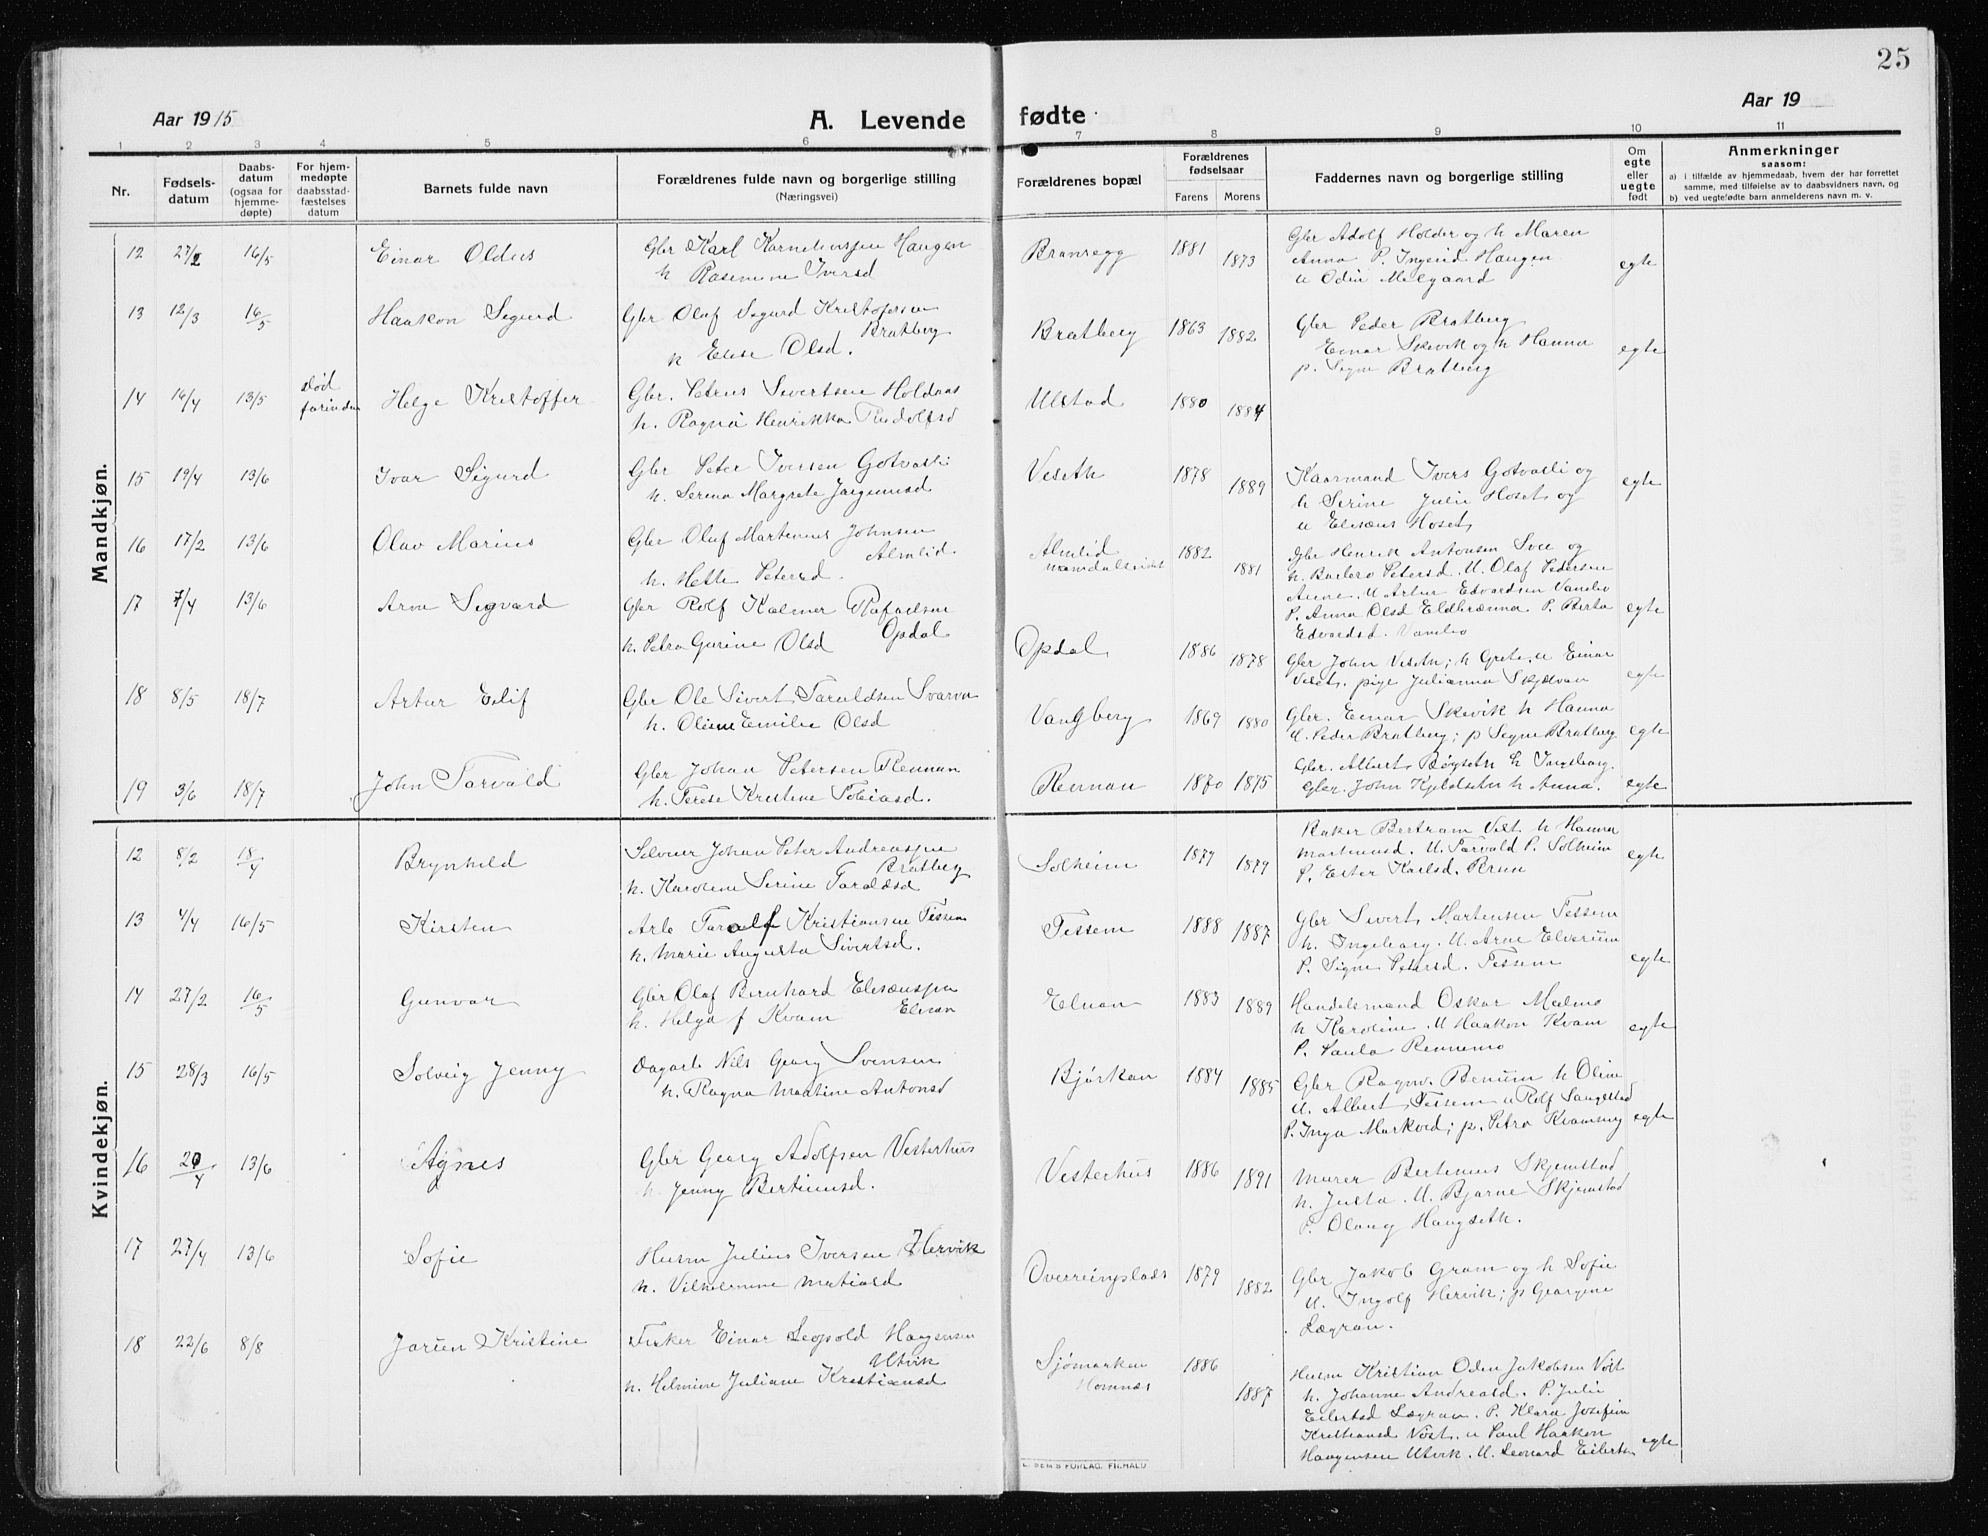 25
Aar 1915
A. Levende fødte
Aar 19
1 2 3 4 5 6 7 8 9 10 11
Nr.
Fødsels-
datum
Daabs-
datum
(ogsaa for
hjemme-
døpte)
For hjem-
medøpte
daabsstad-
fæstelses
datum
Barnets fulde navn
Forældrenes fulde navn og borgerlige stilling
(Næringsvei)
Forældrenes bopæl
Forældrenes
fødselsaar
Farens Morens
Faddernes navn og borgerlige stilling
Om
egte
eller
uegte
født
Anmerkninger
saasom:
a) i tilfælde av hjemmedaab, hvem der har forrettet
samme, med tilføielse av to daabsvidners navn, og
b) ved uegtefødte barn anmelderens navn m. v.
Mandkjøn.
12 27/2 16/5 Einar Oldus
Gbr Karl Korneliussen Haugen
h Rosemine Iversd
Branregg 1881 1873
Gbr Adolf Holder og h Maren
Anna P. Ingerid Haugen
u Odin Melgaard
egte
13 12/3 16/5 Haakon Sigurd
Gbr Olaf Sigurd Kristofersen
Bratberg
h Elise Olsd.
Bratberg 1863 1882
Gbr Peder Bratberg
Einar Skevik og h Hanna
p. Signe Bratberg
egte
14 16/4 13/5 død
forinden
Helge Kristoffer
Gbr. Petrus Sivertsen Holdaas
h. Ragna Henrikka Rudolfsd
Ulstad 1880 1884
15 19/4 13/6 Ivar Sigurd
Gbr Peter Iversen Gotvasli
h. Serina Margrete Jørgensd
Veseth 1878 1889
Kaarmand Ivers Gotvasli og
h Serine Julie Hoset og
u Eliseus Hoset
egte
16 17/2 13/6 Olav Marius
Gbr Oluf Martinus Johnsen
Almlid
h. Hette Petersd.
Almlid
Namdalseidet 1882 1881
Gbr Henrik Antonsen Sve og
h. Barbro Petersd U. Olaf Pedersen
Aune. U Artur Edvardsen Vanebo
P. Anna Olsd Eldbrænna. P. Berta
Edvardsd. Vanebo
egte
17 7/4 13/6 Arne Sigvard
Gbr Rolf Kalmer Rafaelsen
h. Petra Gurine Olsd Opdal
Opdal 1886 1878
Gbr John Veseth; h Grete, u Einar
Veset, pige Julianna Skjevan
egte
18 8/5 18/7 Artur Eilif
Gbr Ole Sivert Taraldsen Svarva
h. Oline Emilie Olsd
Vangberg 1869 1880
Gbr. Einar Skevik h Hanna
U. Peder Bratberg; p Signe Bratberg
egte
19 3/6 18/7 John Torvald
Gbr Johan Petersen Rennan
h. Terese Kristine Tobiasd.
Rennan 1870 1875
Gbr. Albert Bøgseth h Ingeborg.
Gbr. John Kjeldseth h Anna.
egte
Kvindekjøn.
12 8/2 18/4 Brynhild
Selveier Johan Peter Andreassen
Bratberg
h. Karoline Serine Taraldsd
Solheim 1877 1879
Baker Bertram Vest h Hanna
Martinusd. U. Torvald P. Solheim
P. Ester Karlsd. Bruun
egte
13 4/4 16/5 Kirsten
Arb Toralf Kristiansen Tessem
h. Marie Augusta Sivertsd.
Tessem 1888 1887
Gbr Sivert Martensen Tessem
h. Ingeborg. U. Arne Elverum
P. Signe Petersd. Tessem
egte
14 27/2 16/5 Gunvor
Gbr Olaf Bernhard Eliseussen
h. Helga f Kvam Elnan
Elnan 1883 1889
Handelsmand Oskar Malmo
h Karoline. U Haakon Kvam
P. Paula Rennemo
egte
15 28/3 16/5 Solveig Jenny
Dagarb Nils Georg Svensen
h. Ragna Maatine Antonsd
Bjørkan 1884 1885
Gbr Ragnv. Benum h Oline
U. Albert Tessem u Rolf Saugestad
P. Inga Markved; p. Petra Kvamme
egte
16 20/4 13/6 Agnes
Gbr Georg Adolfsen Vesterhus
h. Jenny Bertinusd.
Vesterhus 1886 1891
Murer Bertinus Skjemstad
h. Julta. U. Bjarne Skjemstad
P. Olaug Haugseth.
17 27/4 13/6 Sofie
Husm Julius Iversen Hervik
h. Vilhelmine Matiasd
Overreinsplads 1879 1882
Gbr Jakob Gram og h Sofie
U. Ingolf Hervik; p Georgine
Lægran.
18 22/6 8/8 Jorun Kristine
Fisker Einar Leopold Haagensen
Utvik
h. Helmine Juliane Kristiansd
Sjømarken
Homnes 1886 1887
Husm Kristian Oden Jakobsen Vøst
h. Johanne Andreasd. P. Julie
Eilertsd Lægran. P. Klara Josefine
Kristiansd Vøst. u Paul Haakon
Haagensen Utvik. U. Leonard Eilerts
egte
E. SEMS FORLAG, FR.HALD